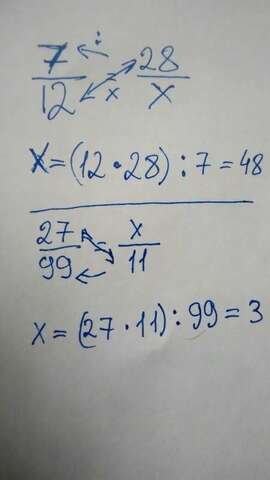 7/12 = 28/x
: x
X=(12•28):7=48
27/99 = x/11
x=(27•11):99=3